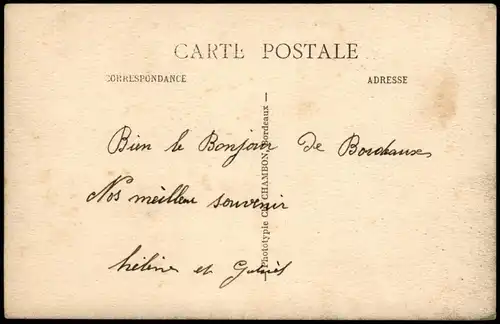 CARTE POSTALE
CORRESPONDANCE
ADRESSE
Phototypie CH. CHAMBON, Bordeaux
Bien le Bonjour de Bordeaux
Nos meilleu souvenir
hélène et